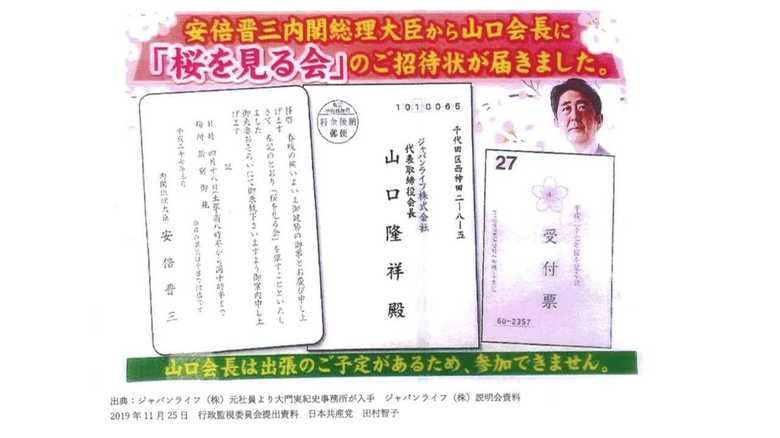 安倍晋三内閣総理大臣から山口会長に
「桜を見る会」のご招待状が届きました。
拝啓 春暖の候いよいよ御健勝の御事とお慶び申し上
げます
さて 左記のとおり「桜を見る会」を催すことといたし
ました
御夫妻おそろいにて御来観下さいますよう御案内申し上
げます
記
日時 四月十八日(土)午前八時半から同十時半まで
場所 新宿御苑
平成二十七年三月
内閣総理大臣 安倍晋三
料金後納
郵便
1010065
千代田区西神田二-八-五
ジャパンライフ株式会社
代表取締役会長
山口隆祥殿
27
受付票
60-2357
山口会長は出張のご予定があるため、参加できません。
出典:ジャパンライフ(株)元社員より大門実紀史事務所が入手 ジャパンライフ(株)説明会資料
2019年11月25日 行政監視委員会提出資料 日本共産党 田村智子